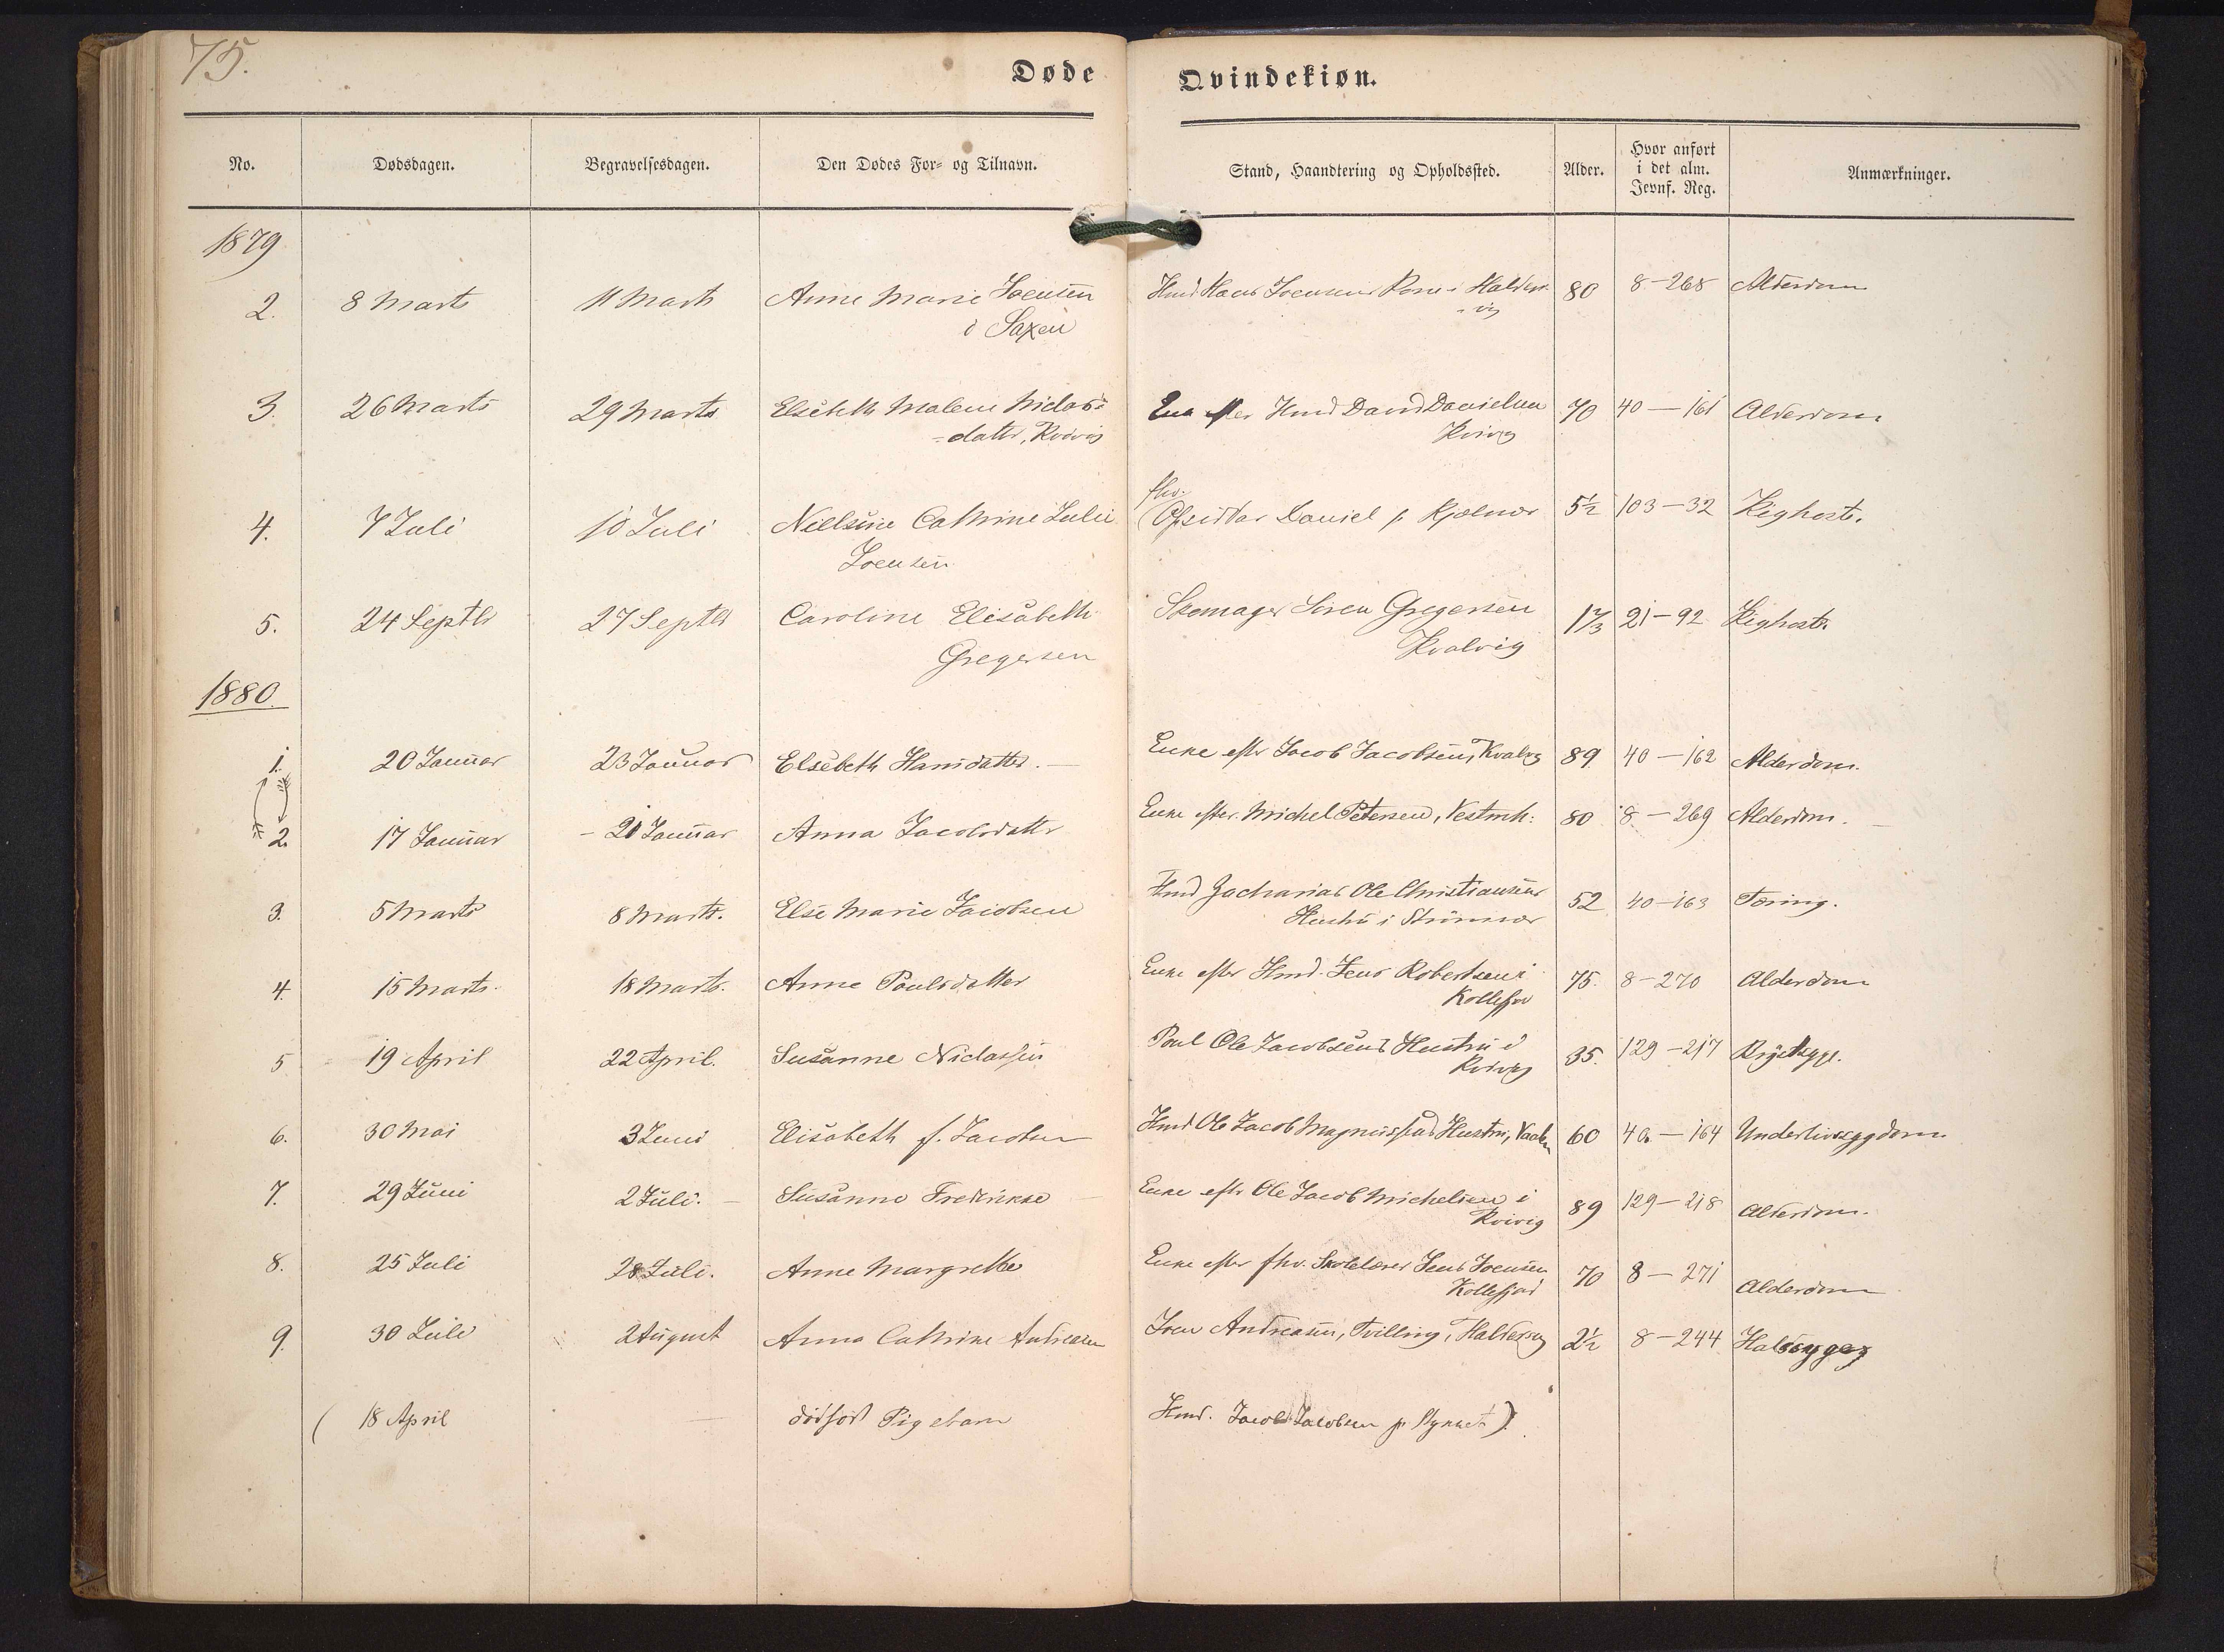 75.
Døde Qvindekiøn.
No. Dødsdagen. Begravelsesdagen. Den Dødes For- og Tilnavn. Stand, Haandtering og Opholdssted. Alder. Hvor anført i det alm. Jevnf. Reg. Anmærkninger.
1879
2. 8 Marts 11 Marts Anne Marie Joensen Hmd Hans Joensens Kone i Halder- 80 8-268 Alderdom
i Saxen -vig
3. 26 Marts 29 Marts Elsebeth Malene Niclas- Enke efter Hmd David Danielsen 70 40-161 Alderdom
-datter, Kvivig Kvivig
fhv.
4. 7 Juli 10 Juli Nielsine Cathrine Julie Opsidder Daniel p. Kjelnær 5½ 103-32 Kighoste.
Joensen
5. 24 Septb 27 Septb Caroline Elisabeth Skomager Sören Gregersen 1⅔ 21-92 Kighoste
Gregersen Kvalvig
1880.
1. 20 Januar 23 Januar Elsebeth Hansdatter. Enke efter Jacob Jacobsen, Kvalvig 89 40-162 Alderdom.
2. 17 Januar 21 Januar Anna Jacobsdatter Enke efter Michel Petersen, Vestmh: 80 8-269 Alderdom.
3. 5 Marts 8 Marts. Else Marie Jacobsen Hmd Zacharias Ole Christiansens 52 40-163 Tæring.
Hustru i Strømnæs
4. 15 Marts. 18 Marts. Anne Poulsdatter Enke efter Hmd. Jens Robertsen i 75. 8-270 Alderdom
Kollefjor
5 19 April 22 April. Susanne Niclassen Poul Ole Jacobsens Hustru i 35. 129-217 Brystsygd.
Kvivig
6. 30 Mai 3 Juni Elisabeth f. Jacobsen Hmd Ole Jacob Magnussens Hustru, 60 40-164 Underlivssygdom
7. 29 Juni 2 Juli. Susanne Frederikke Enke eftr Ole Jacob Michelsen i 89 129-218 Alderdom.
Kvivig
8. 25 Juli 28 Juli. Anne Margrethe Enke efter fhv. Skolelærer Jens Joensen 70 8-271 Alderdom
Kollefjord
9. 30 Juli 2 August Anna Cathrine Andreasen Joen Andreasen, Tvilling, Haldersvg 2½ 8-244 Halssyge
( 18 April dødfødt Pigebarn Hmd. Jacob Jacobsen p. Stykket).